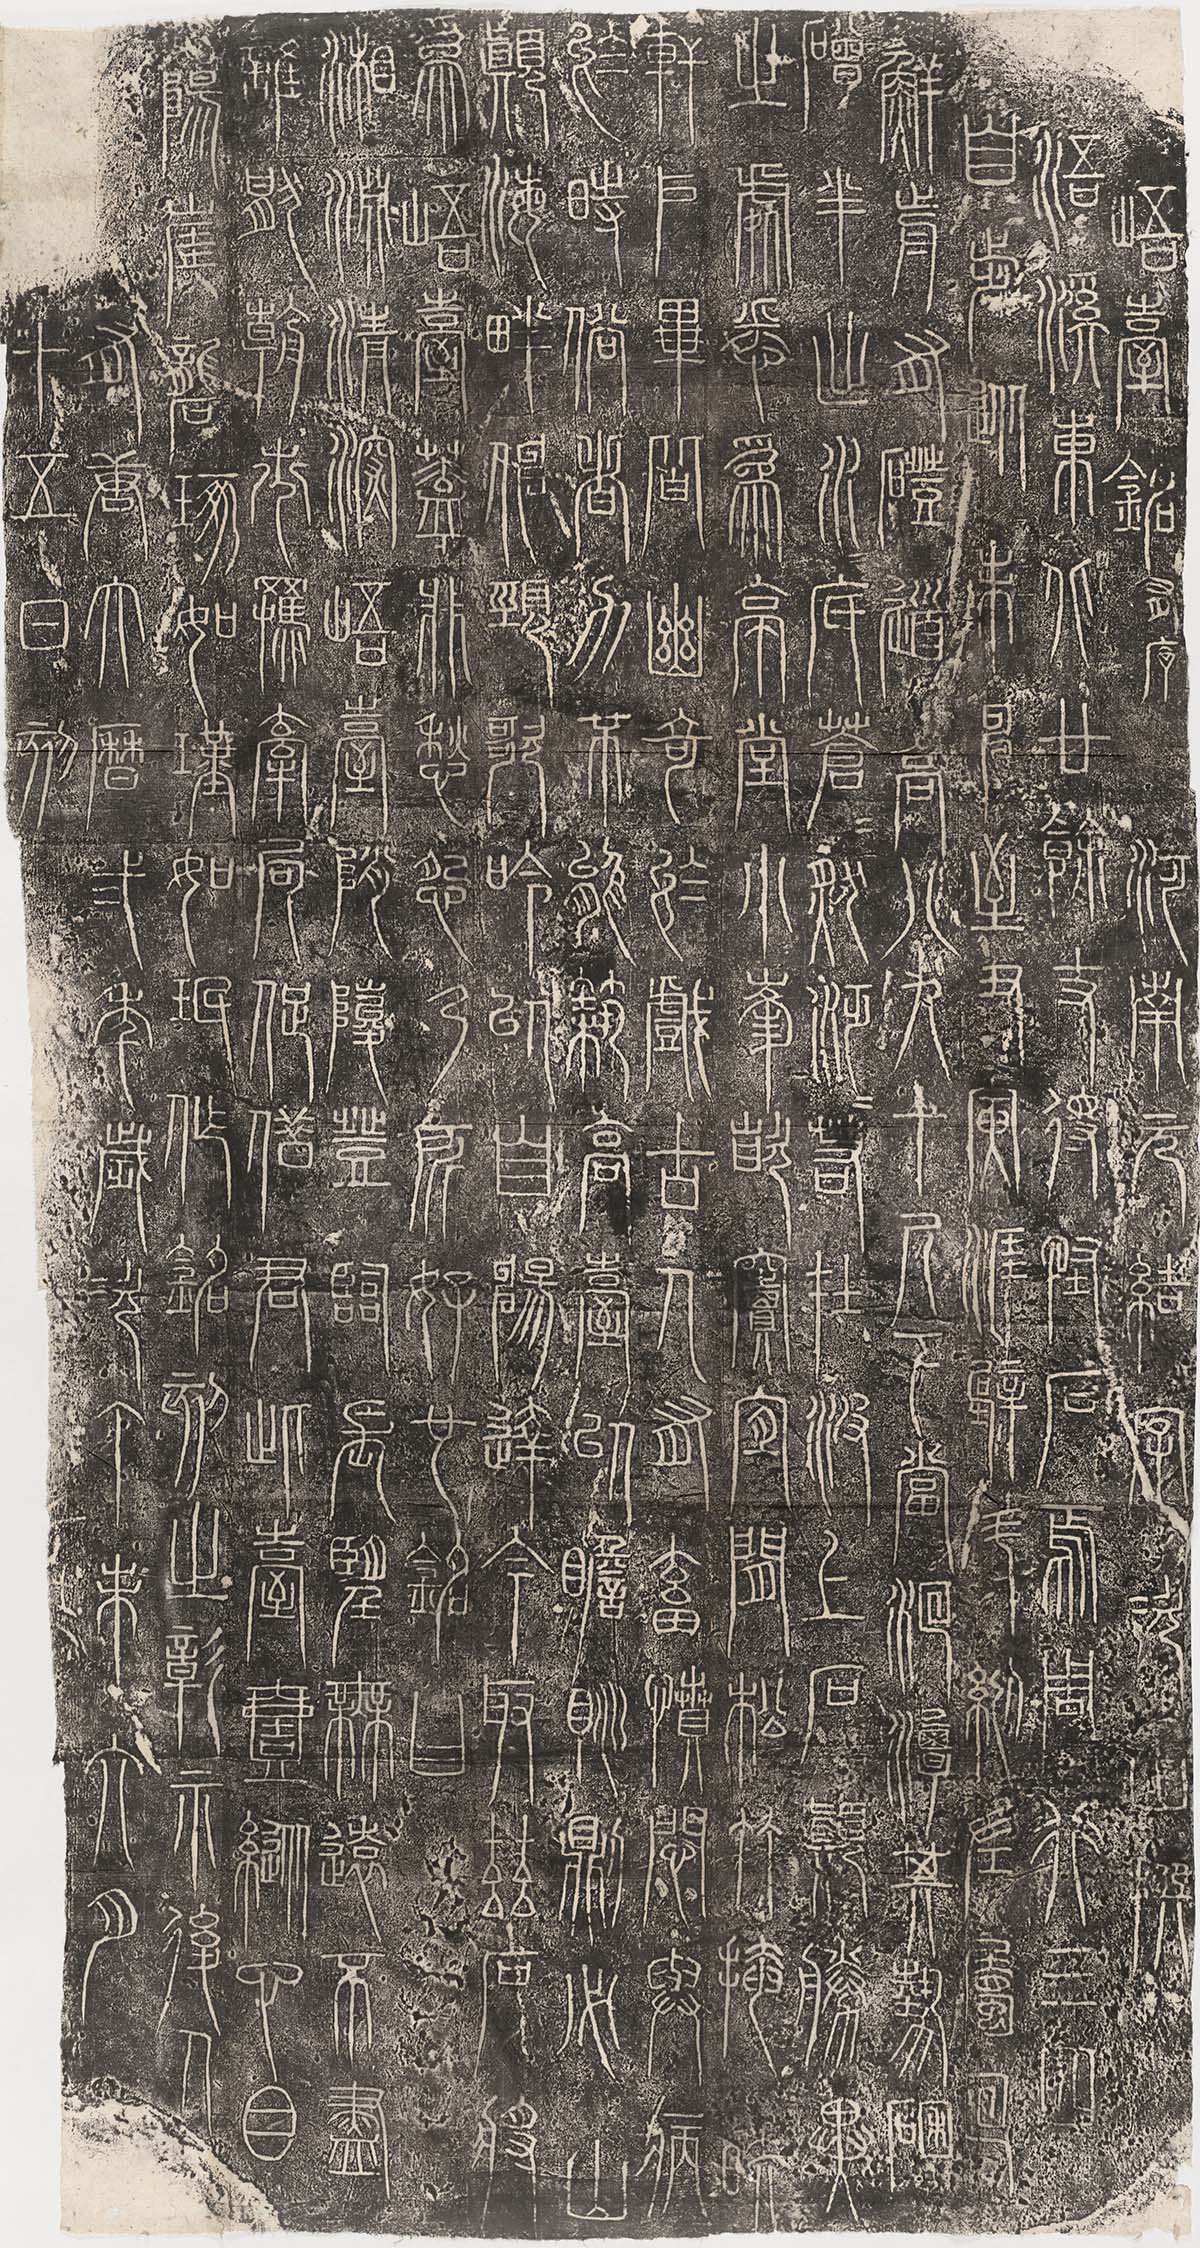 峿臺銘有序 河南元結字次山撰
浯溪東北廿餘丈得怪石焉周行三四
百步從未申至丑寅涯壁斗絕左屬回
鮮前有磴道高八九十尺下當洄潭其勢碅
磳半出水底蒼然泛泛若在波上石顛勝異
之處悉為亭堂小峯嵌竇宜間松竹掩映
軒戶畢皆幽奇於戲古人有畜憤悶與病
於時俗者力不能築高臺以瞻眺則必山
顛海畔伸頸歌吟以自暢達今取茲石將
為峿臺蓋非愁怨乃所好也銘曰
湘淵清深峿臺陗陵登臨長望無遠不盡
誰厭朝市羈牽局促借君此臺壹縱心目
陽崖礱琢如瑾如珉作銘刻之彰示後人
有唐大曆二年歲次丁未六月
十五日刻